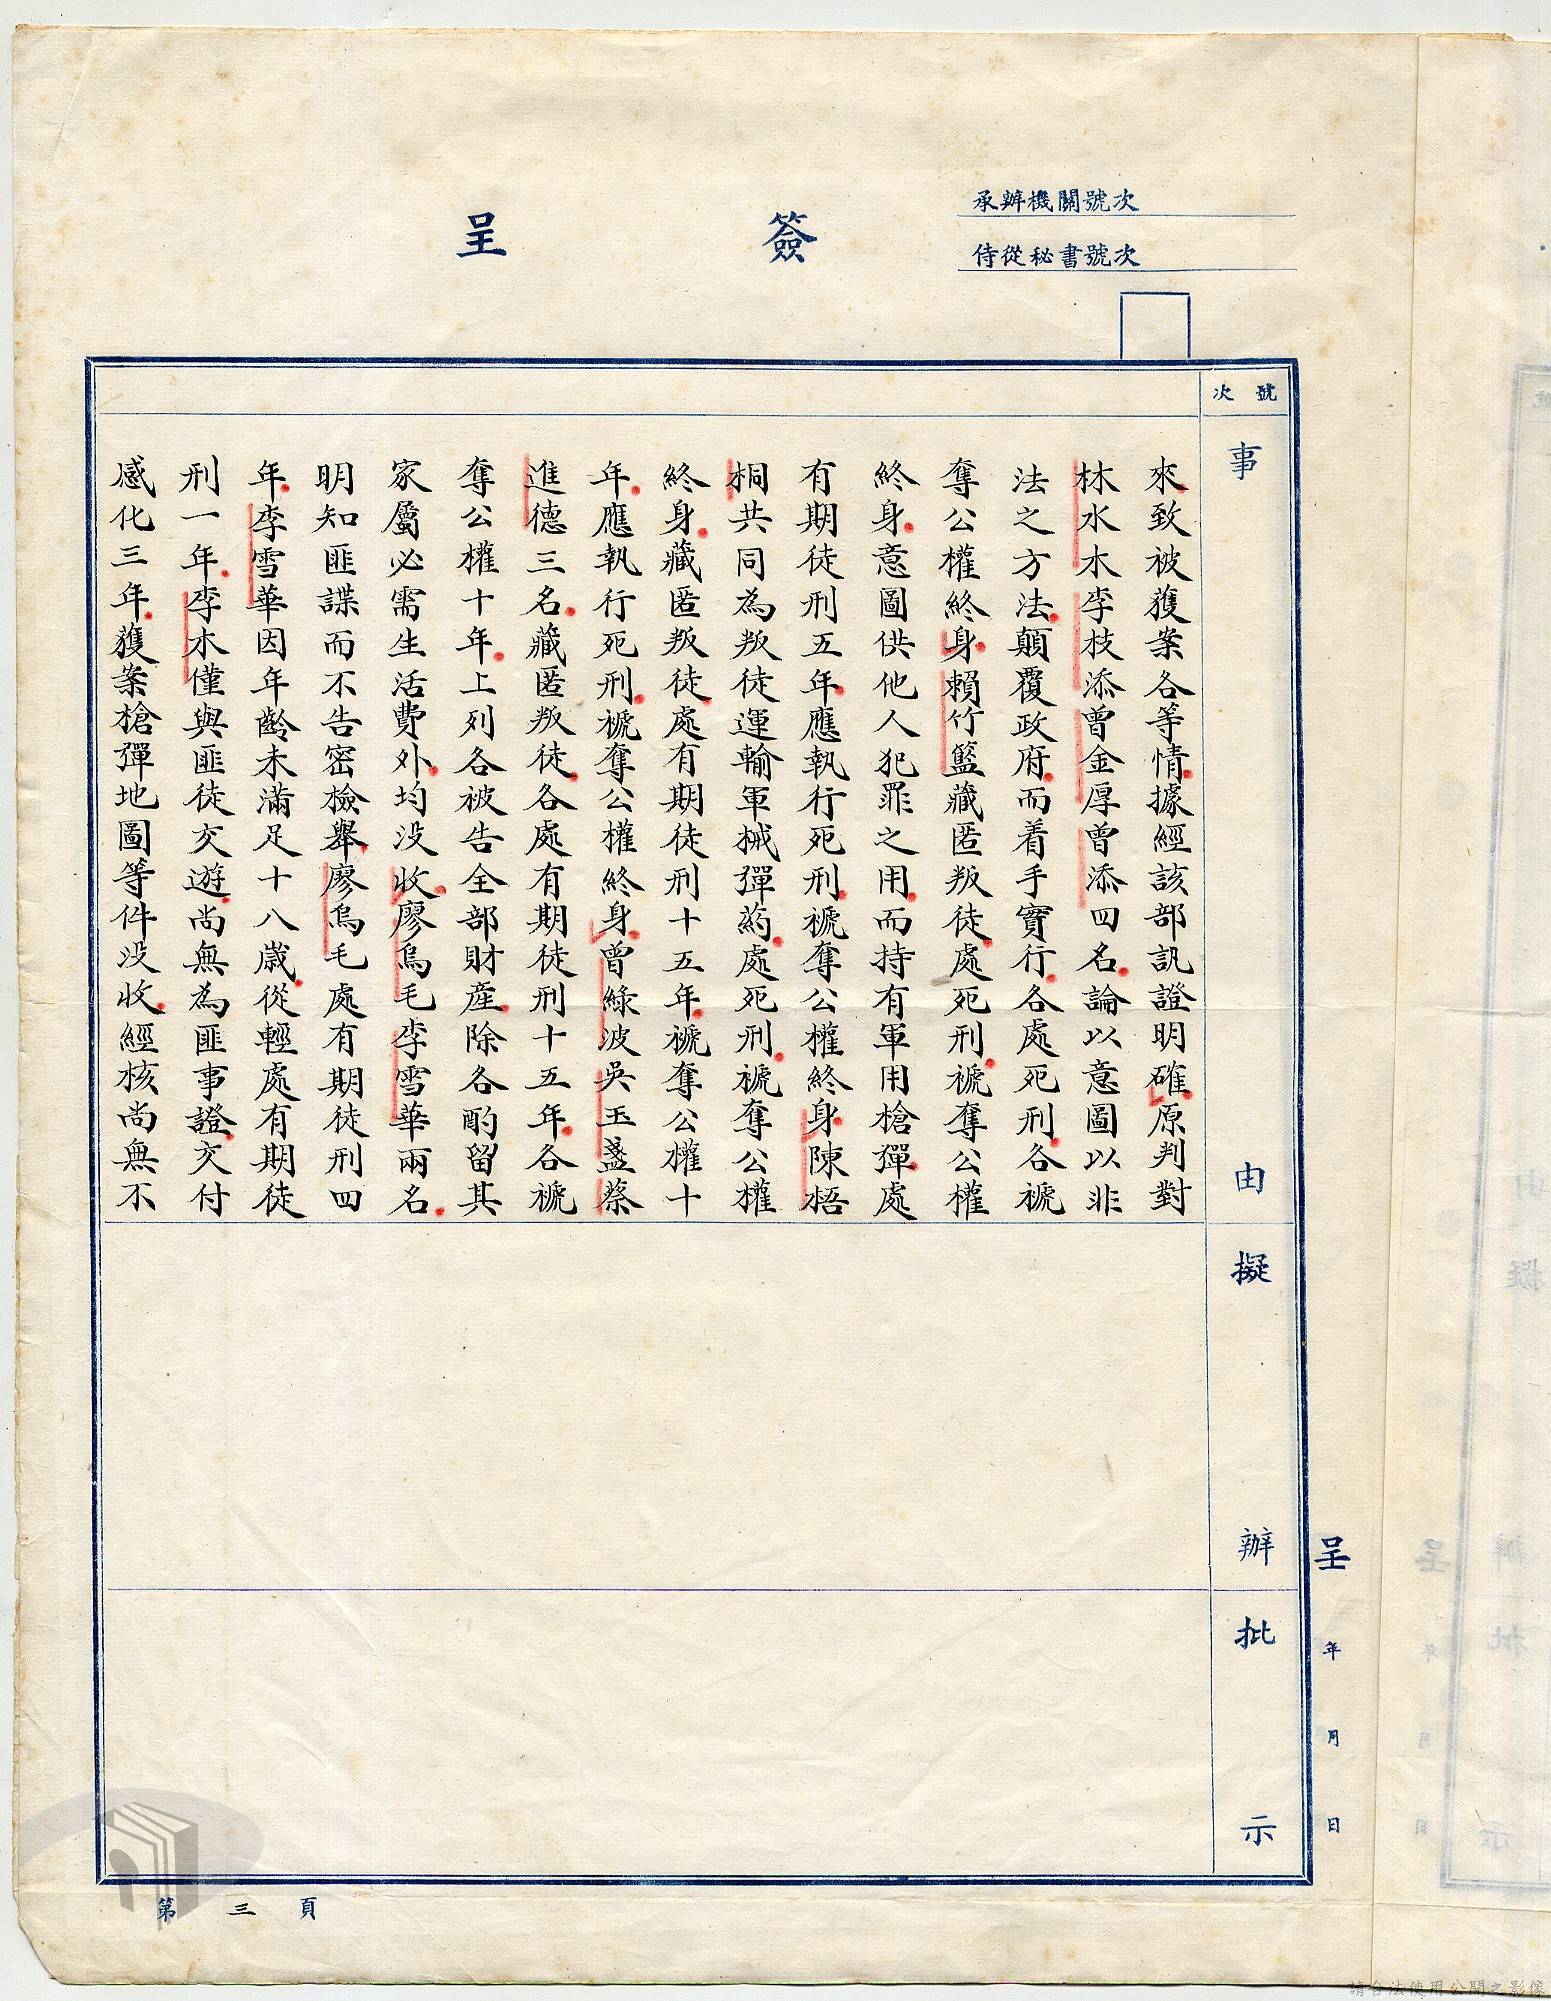 簽呈
承辦機關號次
侍從秘書號次
號次
事由
擬辦
批示
來致被獲案各等情據經該部訊證明確原判對
林水木李枝添曾金厚曾添四名論以意圖以非
法之方法顛覆政府而着手實行各處死刑各褫
奪公權終身賴竹籃藏匿叛徒處死刑褫奪公權
終身意圖供他人犯罪之用而持有軍用槍彈處
有期徒刑五年應執行死刑褫奪公權終身陳梧
桐共同為叛徒運輸軍械彈葯處死刑褫奪公權
終身藏匿叛徒處有期徒刑十五年褫奪公權十
年應執行死刑褫奪公權終身曾綠波吳玉盞蔡
進德三名藏匿叛徒各處有期徒刑十五年各褫
奪公權十年上列各被告全部財產除各酌留其
家屬必需生活費外均没收廖烏毛李雪華兩名
明知匪諜而不告密檢舉廖烏毛處有期徒刑四
年李雪華因年齡未滿足十八歲從輕處有期徒
刑一年李木僅與匪徒交遊尚無為匪事證交付
感化三年獲案槍彈地圖等件没收經核尚無不
呈 年 月 日
第三頁
請合法使用公開之影像